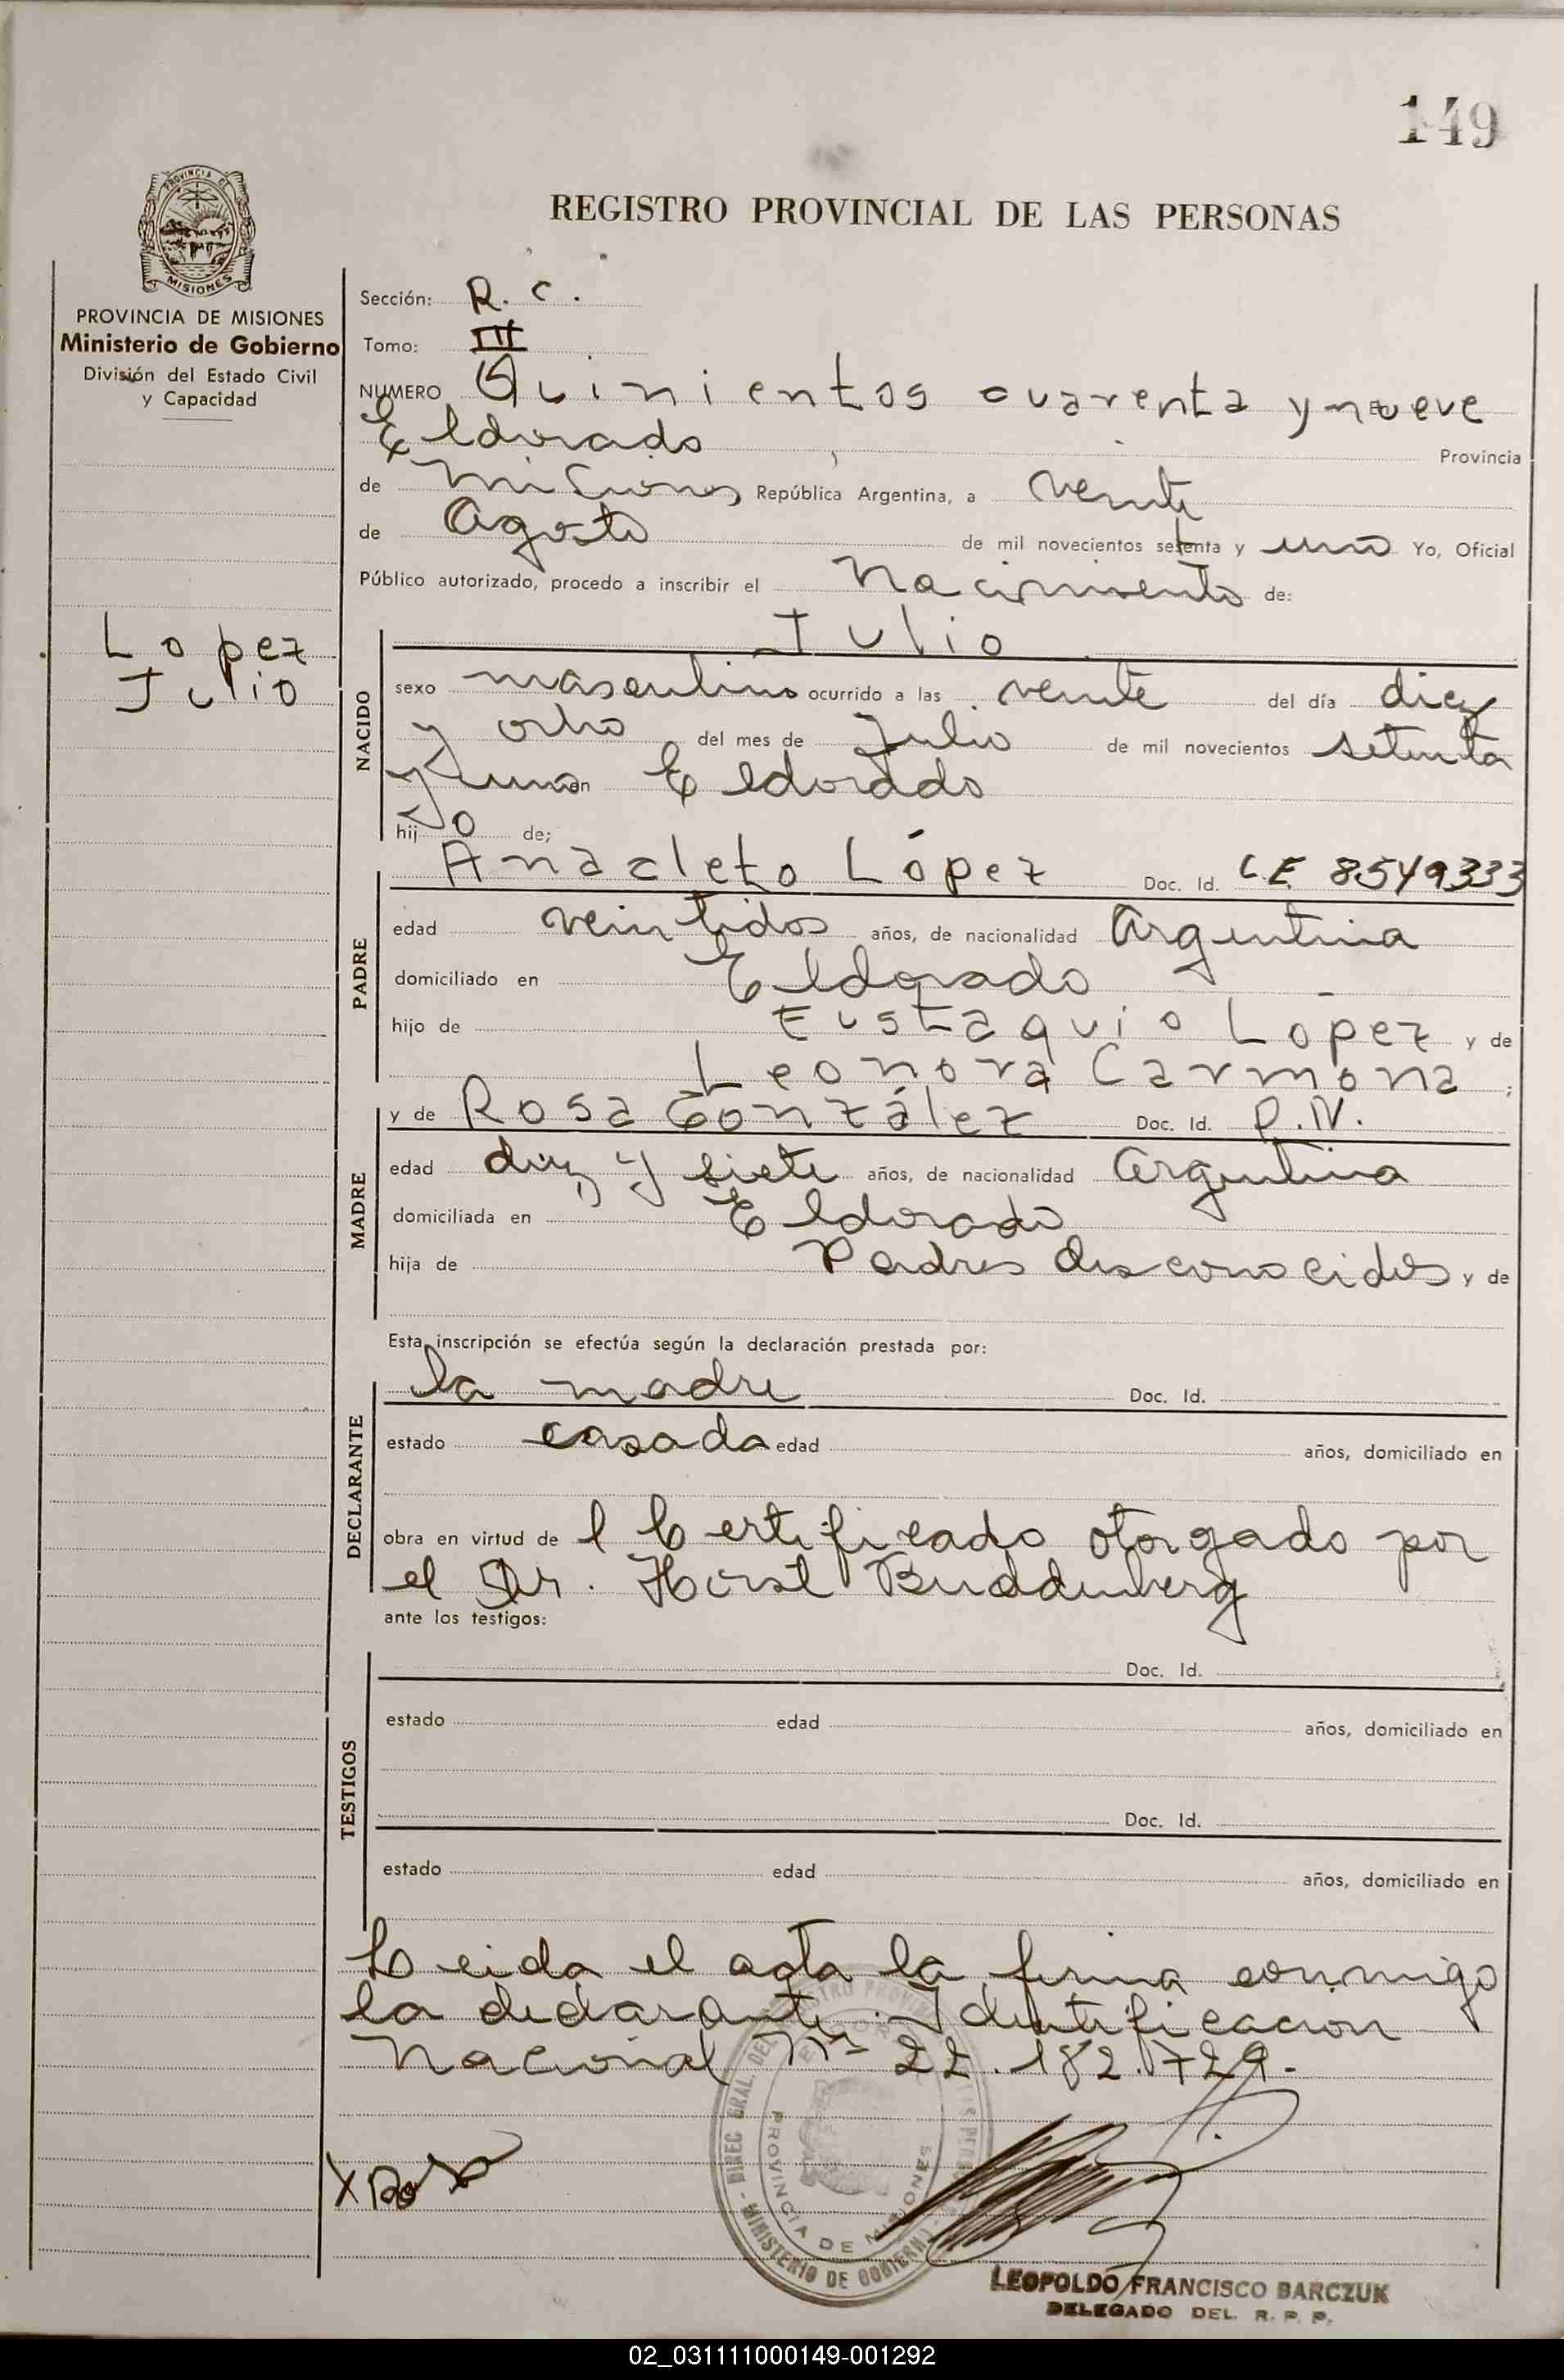 149
PROVINCIA DE
MISIONES
REGISTRO PROVINCIAL DE LAS PERSONAS
PROVINCIA DE MISIONES
Ministerio de Gobierno
División del Estado Civil
y Capacidad
Sección: R. C.
Tomo: III
NUMERO Quinientos cuarenta y nueve
Eldorado, Provincia
de Misiones República Argentina, a veinte
de Agosto de mil novecientos setenta y uno Yo, Oficial
Público autorizado, procedo a inscribir el Nacimiento de:
Lopez
Julio
NACIDO
Julio
sexo masculino ocurrido a las veinte del día diez
y ocho del mes de Julio de mil novecientos setenta
y uno en Eldorado
hijo de;
PADRE
Anacleto López Doc. Id. L.E. 8549333
edad veintidos años, de nacionalidad Argentina
domiciliado en Eldorado
hijo de Eustaquio López y de
Leonora Carmona ;
MADRE
y de Rosa González Doc. Id. P.N.
edad diez y siete años, de nacionalidad Argentina
domiciliada en Eldorado
hija de Padres desconocidos y de
Esta inscripción se efectúa según la declaración prestada por:
DECLARANTE
la madre Doc. Id.
estado casada edad años, domiciliado en
obra en virtud de l Certificado otorgado por
el Dr. Horst Buddenberg
ante los testigos:
TESTIGOS
Doc. Id.
estado edad años, domiciliado en
Doc. Id.
estado edad años, domiciliado en
Leida el acta la firma conmigo
la declarante. Identificación
Nacional Nº 22.182.729.-
X Rosa
DIREC GRAL. DEL REGISTRO PROVINCIAL DE LAS PERSONAS
MINISTERIO DE GOBIERNO
PROVINCIA DE MISIONES
LEOPOLDO FRANCISCO BARCZUK
DELEGADO DEL R. P. P.
02_031111000149-001292